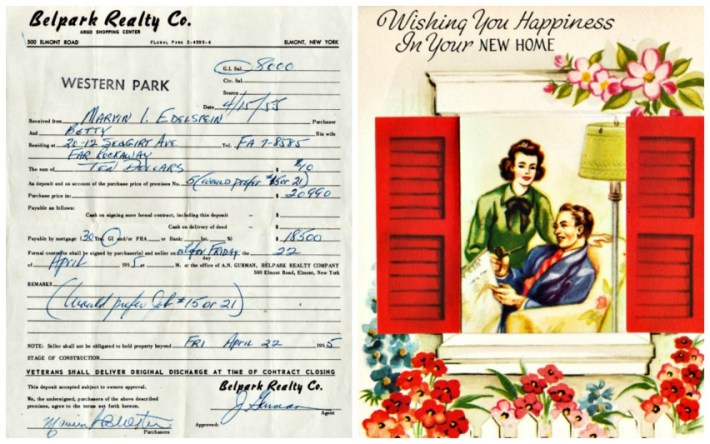 Belpark Realty Co.
ARGO SHOPPING CENTER
500 ELMONT ROAD FLORAL PARK 2-4395-6 ELMONT, NEW YORK
G.I. Sal. 8000
Civ. Sal.
Source
WESTERN PARK
Date 4/15/55
Received from MARVIN I. EDELSTEIN Purchaser
And BETTY his wife
Residing at 20-12 SEAGIRT AVE Tel. FA 7-8585
FAR ROCKAWAY
The sum of TEN DOLLARS $ 10
As deposit and on account of the purchase price of premises No. 5 (would prefer #15 or 21)
Purchase price is: $ 20990
Payable as follows:
Cash on signing more formal contract, including this deposit - $
Cash on delivery of deed - $
Payable by mortgage (30 Yrs. GI and/or FHA or Bank: Ins. %) $ 18500
Formal contracts shall be signed by purchaser(s) and seller on or before FRIDAY the 22
day
of April 195 at M. at the office of A.N. GURMAN, BELPARK REALTY COMPANY
500 Elmont Road, Elmont, New York
REMARKS
(Would prefer Lot #15 or 21)
NOTE: Seller shall not be obligated to hold property beyond FRI April 22 1955
STAGE OF CONSTRUCTION
VETERANS SHALL DELIVER ORIGINAL DISCHARGE AT TIME OF CONTRACT CLOSING
This deposit accepted subject to owners approval.
Belpark Realty Co.
We, the undersigned, purchasers of the above described
premises, agree to the terms set forth herein.
Agent
Approved:
Purchasers
Wishing You Happiness
In Your NEW HOME